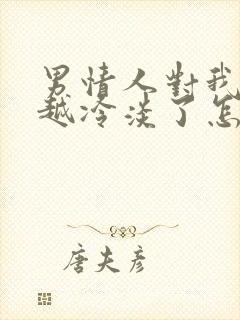 男情人對我
越冷淡了怎
唐夫彥